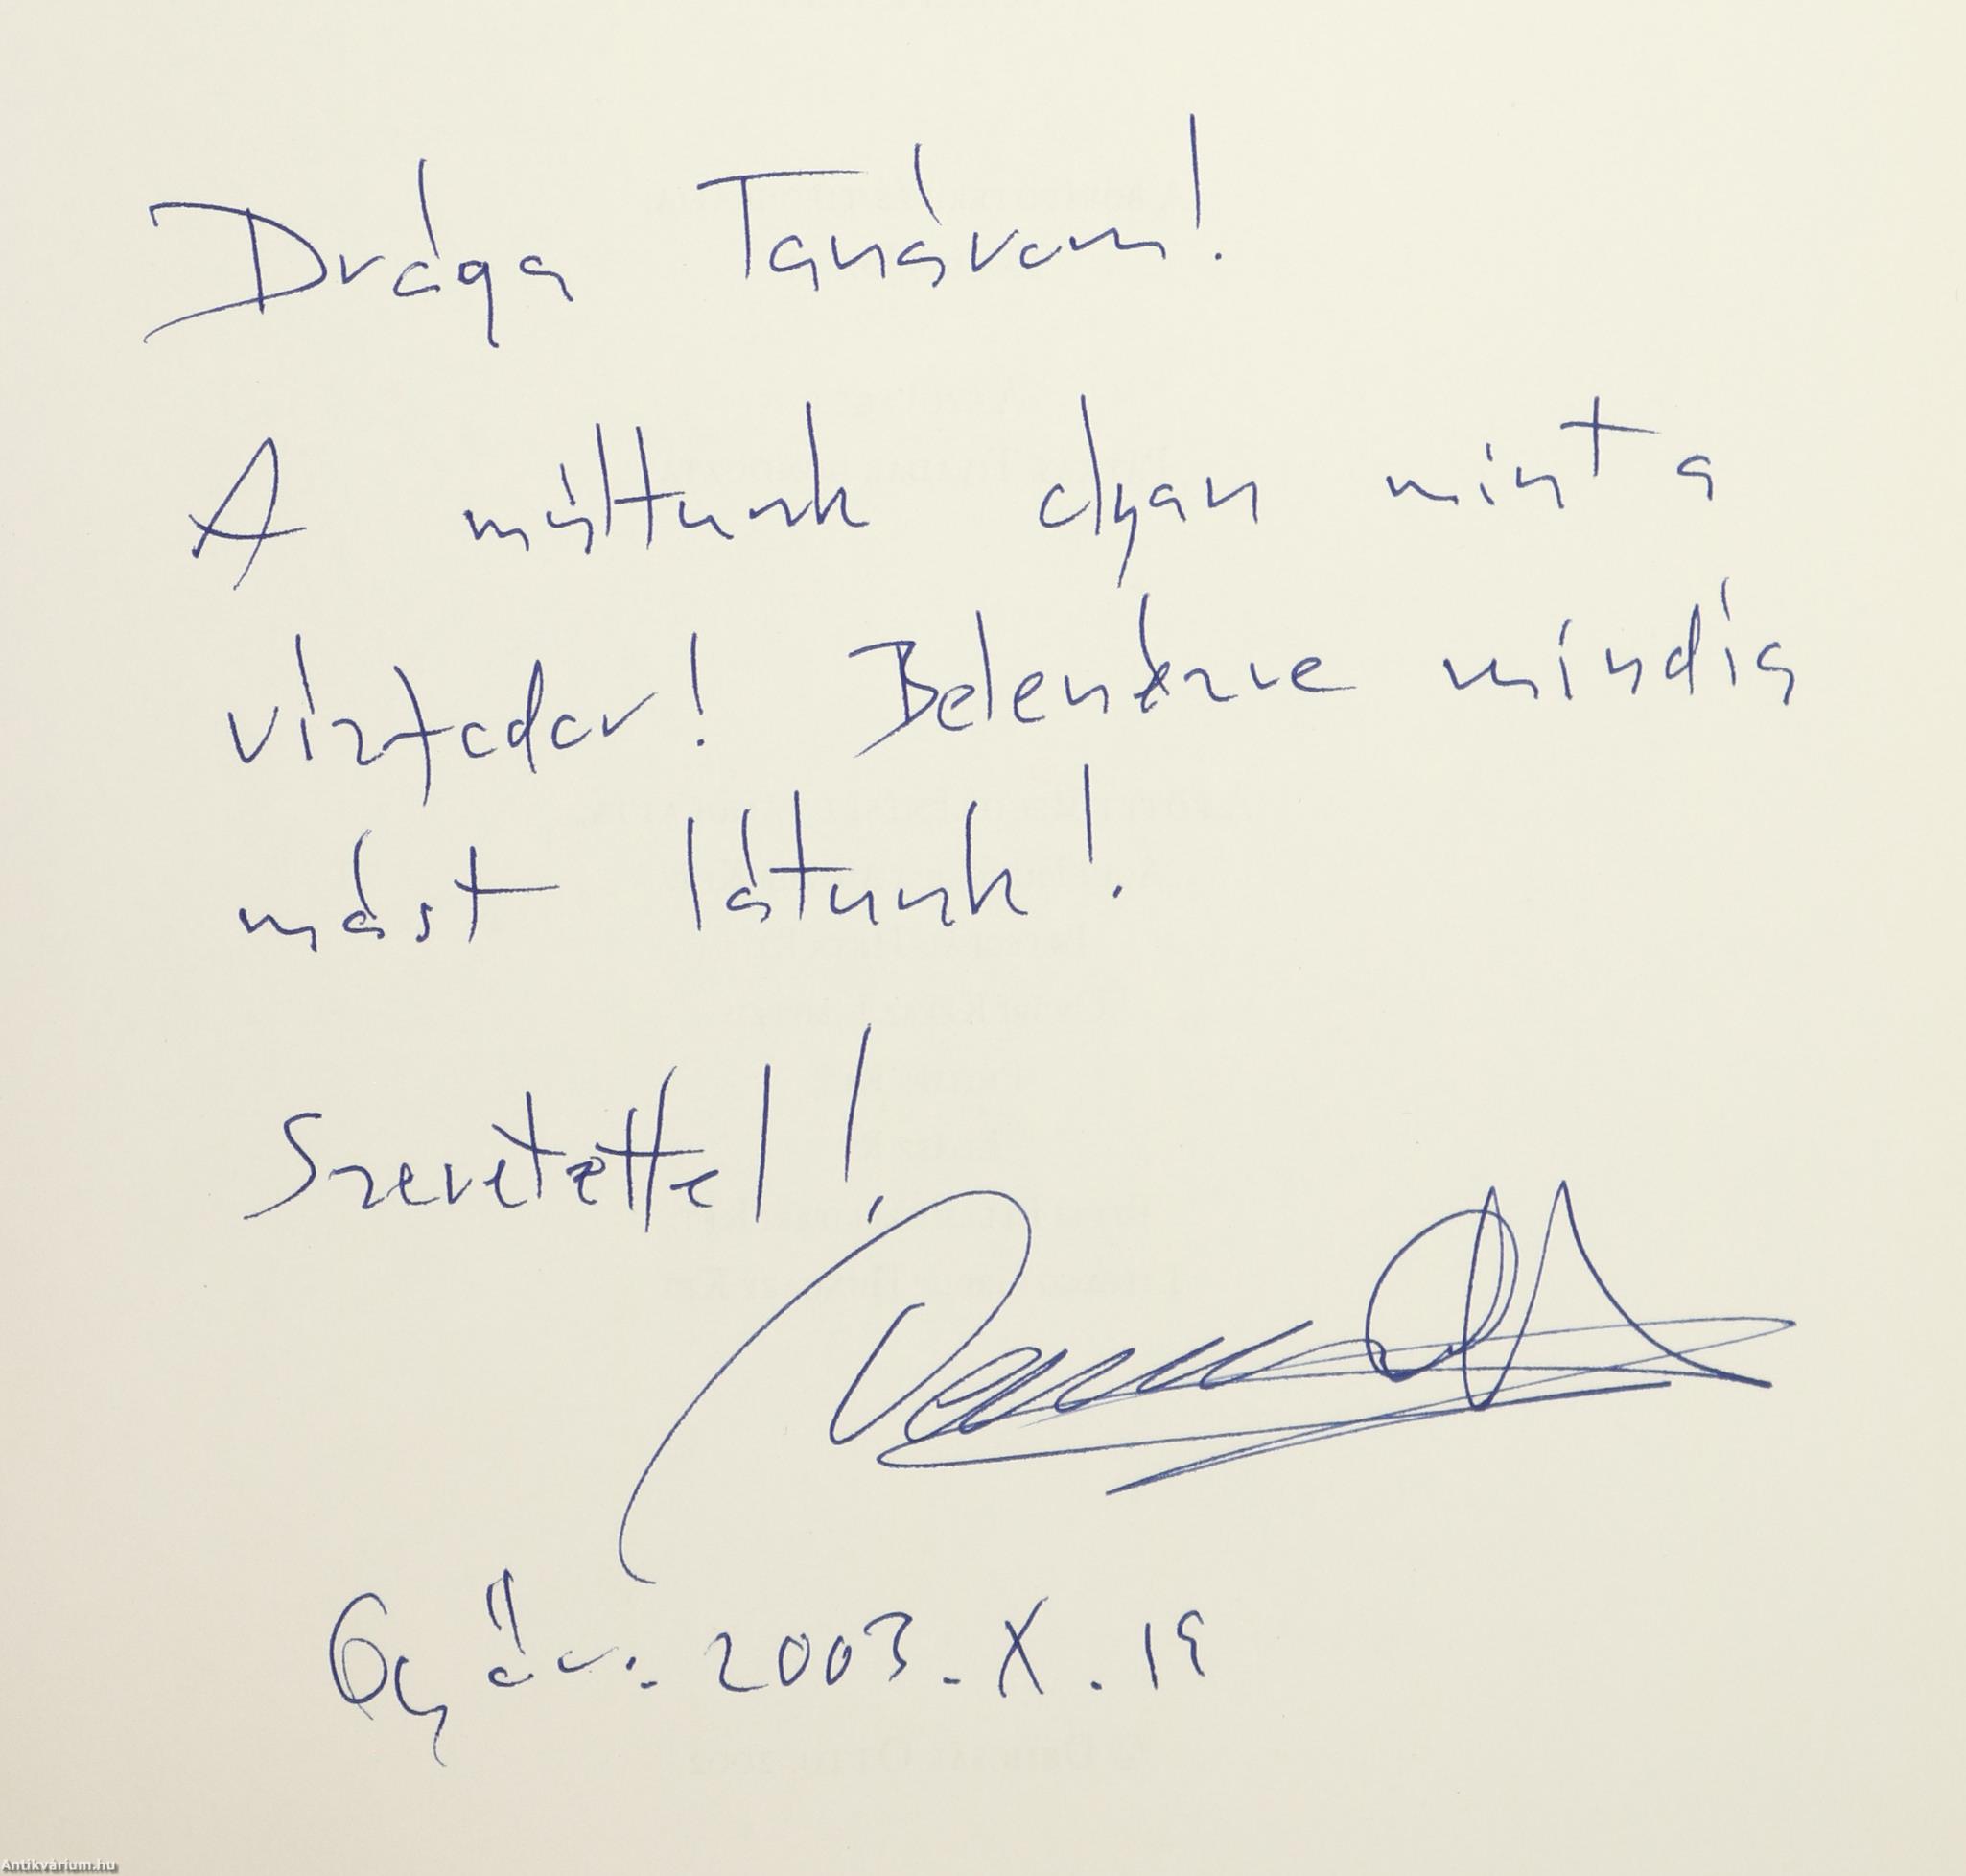 Drága Tanárom!
A múltunk olyan mint a
víztodor! Belenézve mindig
mást látunk!
Szeretettel!
Győr. 2003. X. 19
Antikvárium.hu